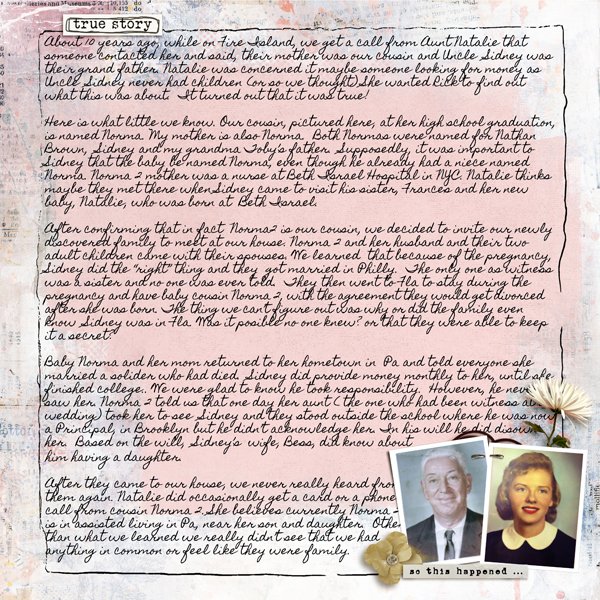 true story
About 10 years ago, while on Fire Island, we get a call from Aunt Natalie that
someone contacted her and said, their mother was our cousin and Uncle Sidney was
their grand father. Natalie was concerned it maybe someone looking for money as
Uncle Sidney never had children (or so we thought). She wanted Rick to find out
what this was about. It turned out that it was true!
Here is what little we know. Our cousin, pictured here, at her high school graduation,
is named Norma. My mother is also Norma. Both Normas were named for Nathan
Brown, Sidney and my grandma Toby's father. Supposedly, it was important to
Sidney that the baby be named Norma, even though he already had a niece named
Norma. Norma 2 mother was a nurse at Beth Israel Hospital in NYC. Natalie thinks
maybe they met there when Sidney came to visit his sister, Frances and her new
baby, Natalie, who was born at Beth Israel.
After confirming that in fact Norma2 is our cousin, we decided to invite our newly
discovered family to meet at our house. Norma 2 and her husband and their two
adult children came with their spouses. We learned that because of the pregnancy,
Sidney did the "right" thing and they got married in Philly. The only one as witness
was a sister and no one was ever told. They then went to Fla to stay during the
pregnancy and have baby cousin Norma 2, with the agreement they would get divorced
after she was born. The thing we can't figure out was why or did the family even
know Sidney was in Fla. Was it possible no one knew? or that they were able to keep
it a secret?
Baby Norma and her mom returned to her hometown in Pa and told everyone she
married a solider who had died. Sidney did provide money monthly to her, until she
finished college. We were glad to know he took responsibility. However, he never
saw her. Norma 2 told us that one day her aunt ( the one who had been witness at
wedding) took her to see Sidney and they stood outside the school where he was now
a Principal, in Brooklyn but he didn't acknowledge her. In his will he did disown
her. Based on the will, Sidney's wife, Bess, did know about
him having a daughter.
After they came to our house, we never really heard from
them again. Natalie did occasionally get a card or a phone
call from cousin Norma 2. She believes currently Norma
is in assisted living in Pa, near her son and daughter. Other
than what we learned we really didn't see that we had
anything in common or feel like they were family.
so this happened ...